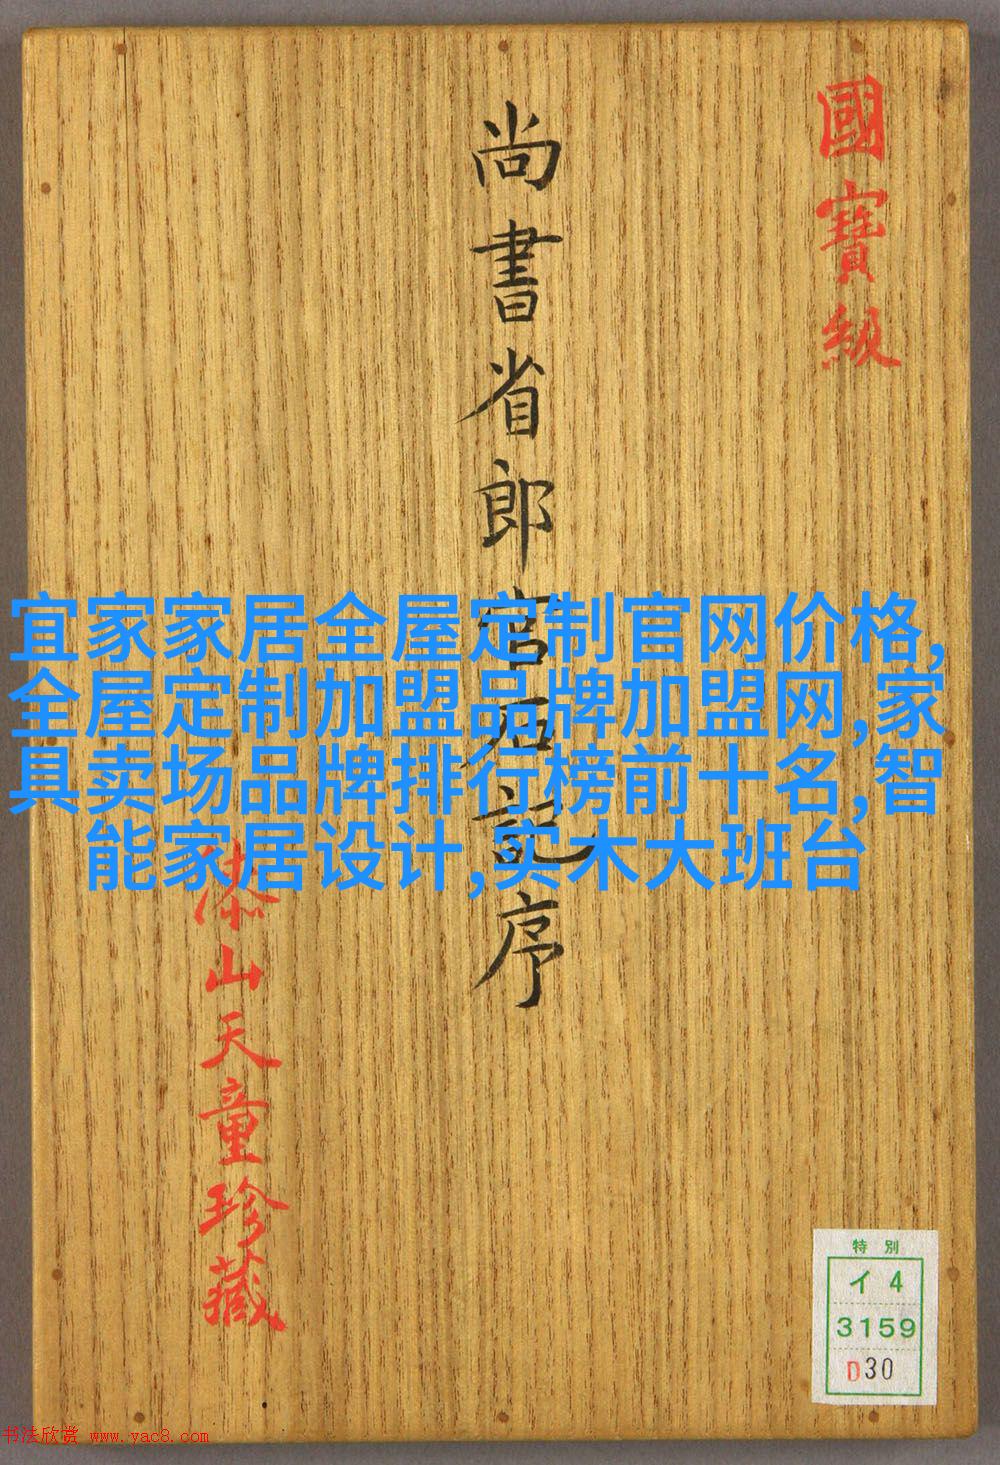 國寶級
尚書省郎官石記序
漆山天童珍藏
宜家家居全屋定制官网价格,
全屋定制加盟品牌加盟网,家
具卖场品牌排行榜前十名,智
能家居设计,实木大班台
特別
イ4
3159
D30
书法欣赏 www.yac8.com